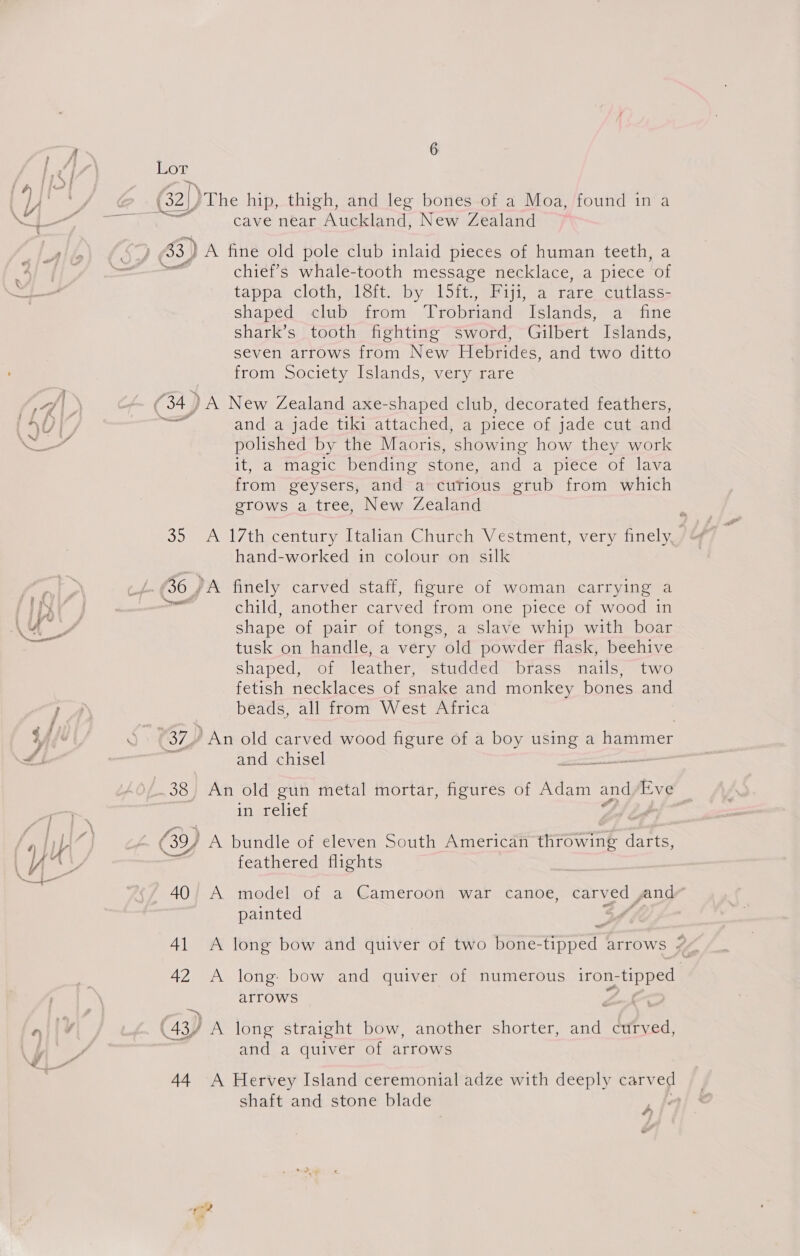 6
Lot
32 The hip, thigh, and leg bones of a Moa, found in a
cave near Auckland, New Zealand
33 A fine old pole club inlaid pieces of human teeth, a
chief's whale-tooth message necklace, a piece of
tappa cloth, 18ft. by 15ft., Fiji, a rare cutlass-
shaped club from Trobriand Islands, a fine
shark's tooth fighting sword, Gilbert Islands,
seven arrows from New Hebrides, and two ditto
from Society Islands, very rare
34 A New Zealand axe-shaped club, decorated feathers,
and a jade tiki attached, a piece of jade cut and
polished by the Maoris, showing how they work
it, a magic bending stone, and a piece of lava
from geysers, and a curious grub from which
grows a tree, New Zealand
35 A 17th century Italian Church Vestment, very finely
hand-worked in colour on silk
36 A finely carved staff, figure of woman carrying a
child, another carved from one piece of wood in
shape of pair of tongs, a slave whip with boar
tusk on handle, a very old powder flask, beehive
shaped, of leather, studded brass nails, two
fetish necklaces of snake and monkey bones and
beads, all from West Africa
37 An old carved wood figure of a boy using a hammer
and chisel
38 An old gun metal mortar, figures of Adam and Eve
in relief
39 A bundle of eleven South American throwing darts,
feathered flights
40 A model of a Cameroon war canoe, carved and
painted
41 A long bow and quiver of two bone-tipped arrows
42 A long bow and quiver of numerous iron-tipped
arrows
43 A long straight bow, another shorter, and curved,
and a quiver of arrows
44 A Hervey Island ceremonial adze with deeply carved
shaft and stone blade